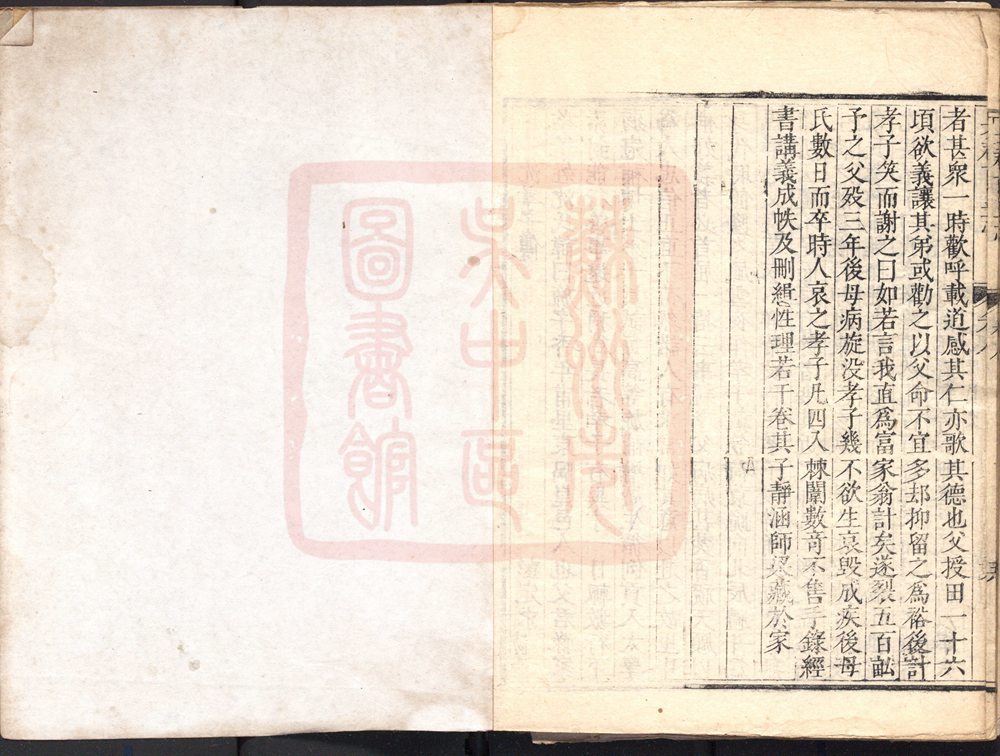 者甚衆一時歡呼載道感其仁亦歌其德也父授田一十六
項欲義讓其弟或勸之以父命不宜多却抑留之爲裕後計
孝子笑而謝之曰如若言我直爲富家翁計矣遂裂五百畝
予之父殁三年後母病旋没孝子幾不欲生哀毁成疾後母
氏數日而卒時人哀之孝子凡四入棘闈數竒不售手錄經
書講義成帙及刪緝性理若干卷其子靜涵師梁藏於家
蘇州市
吳中區
圖書館